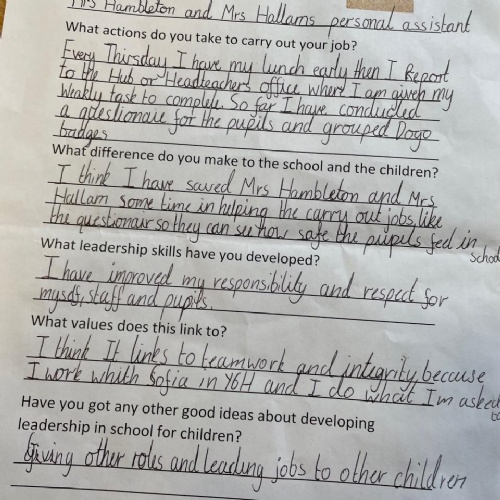 Mrs Hambleton and Mrs Hallams personal assistant
What actions do you take to carry out your job?
Every Thursday I have my lunch early then I Report
to the Hub or Headteachers office where I am given my
Weakly task to complete. So far I have conducted
a qestionaire for the pupils and grouped Dojo
badges
What difference do you make to the school and the children?
I think I have saved Mrs Hambleton and Mrs
Hallam some time in helping the carry out jobs like
the questionair so they can see how safe the pupils feel in
school
What leadership skills have you developed?
I have improved my responsibility and respect for
myself, staff and pupils.
What values does this link to?
I think It links to teamwork and integrity because
I work whith Sofia in Y6H and I do what I'm asked
to
Have you got any other good ideas about developing
leadership in school for children?
Giving other roles and leading jobs to other children